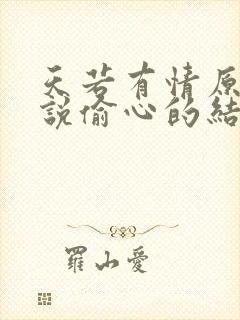 天若有情原
說偷心的結
羅山愛